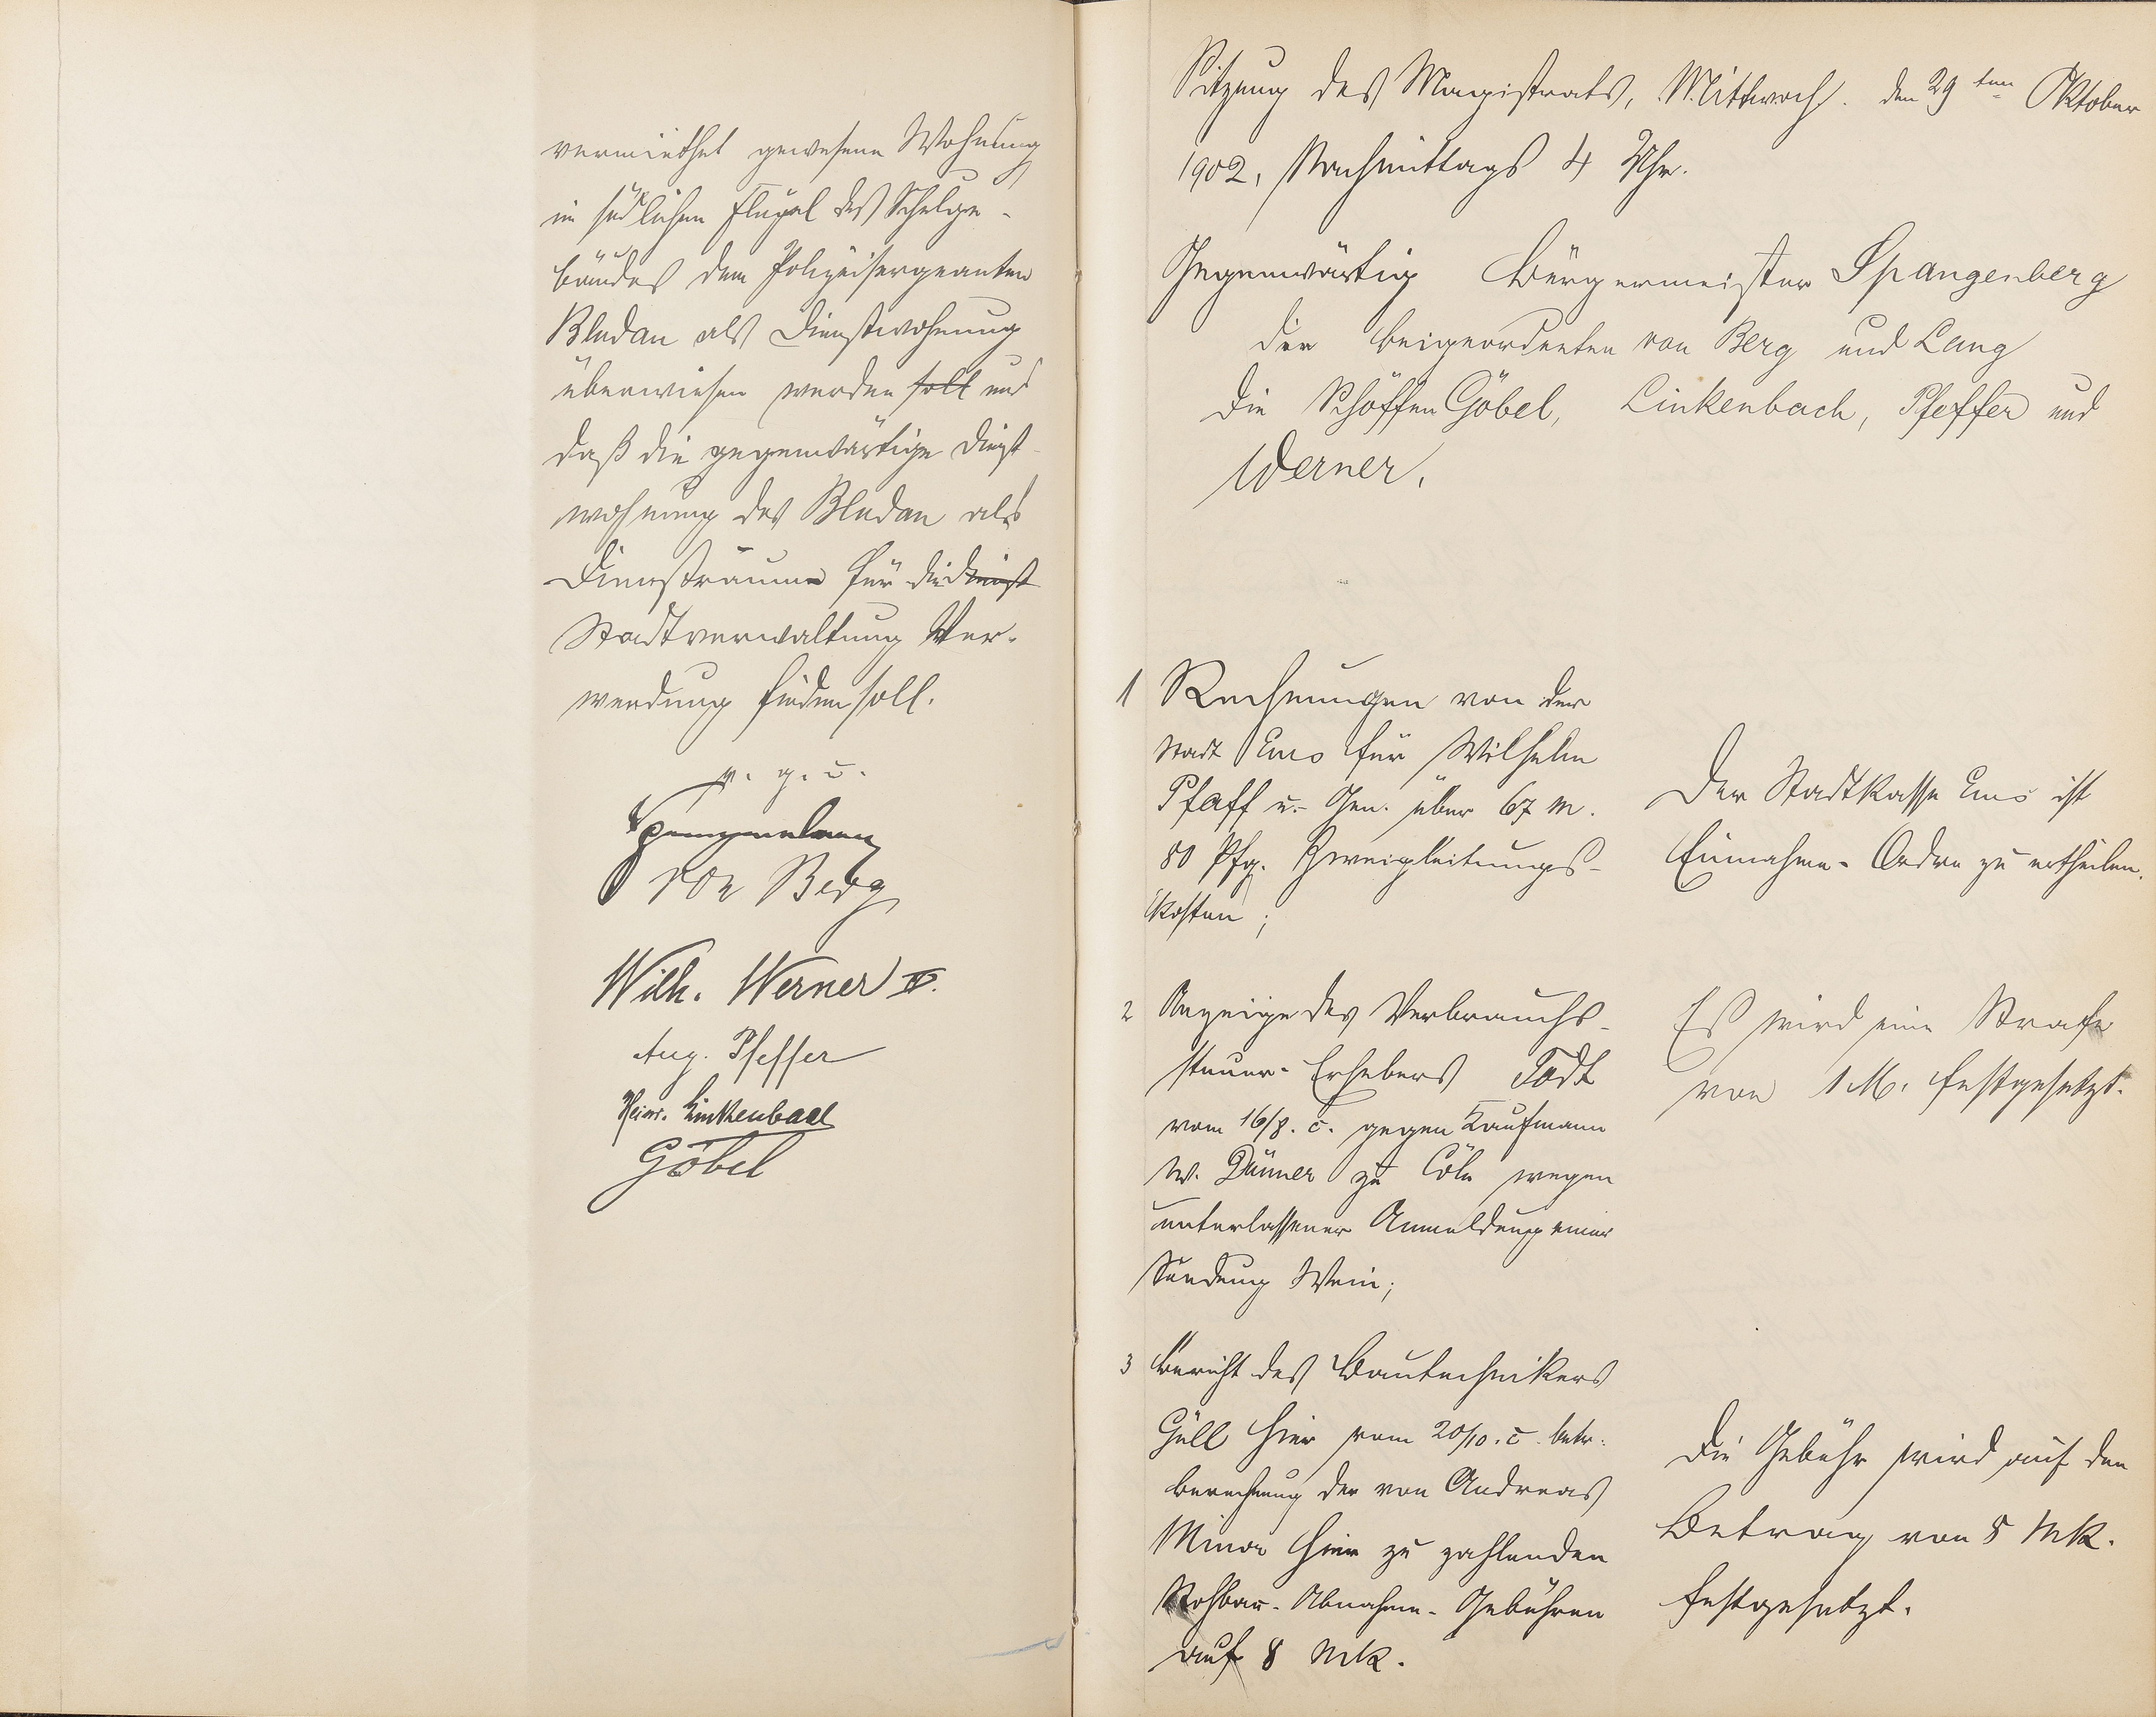 vermiethet gewesene Wohnung
im südlichen Flügel des Schulge-
bäudes dem Polizeisergeanten
Bludau als Dienstwohnung
überwiesen werden soll und
daß die gegenwärtige Dienst-
wohnung des Bludau als
Diensträume für die Dienst
Stadtverwaltung Ver-
wendung finden soll.
v. g. u.
Spangenberg
von Berg
Wilh. Werner IV.
Aug. Pfeffer
Heinr. Linkenbach
Göbel
Sitzung des Magistrats, Mittwoch. den 29ten Oktober
1902, Nachmittags 4 Uhr.
Gegenwärtig Bürgermeister Spangenberg
die Beigeordneten von Berg und Lang
die Schöffen Göbel, Linkenbach, Pfeffer und
Werner.
1 Rechnungen von der
Stadt Ems für Wilhelm
Pfaff u. Gen. über 67 M.
80 Pfg. Zweigleitungs-
kosten;
Der Stadtkasse Ems ist
Einnahme-Ordre zu ertheilen.
2 Anzeige des Verbrauchs-
steuer-Erhebers Todt
vom 16/8. c. gegen Kaufmann
W. Dünner zu Cöln wegen
unterlassener Anmeldung einer
Sendung Wein;
Es wird eine Strafe
von 1 M. festgesetzt.
3 Bericht des Bautechnikers
Güll hier vom 20/10. c. betr.
Berechnung der von Andreas
Minor hier zu zahlenden
Rohbau-Abnahme-Gebühren
auf 8 Mk.
Die Gebühr wird auf den
Betrag von 8 Mk.
festgesetzt.